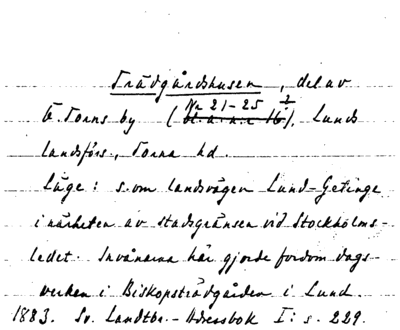 Trädgårdshusen, del av
Nr 21-25 ?
Ö. Torns by (bl. a. n:r 16), Lunds
landsförs., Torna hd.
Läge: s. om landsvägen Lund-Getinge
i närheten av stadsgränsen vid Stockholms-
ledet. Invånarna här gjorde fordom dags-
verken i Biskopsträdgården i Lund.
1883. Sv. Landtbr.-Adressbok I: s. 229.